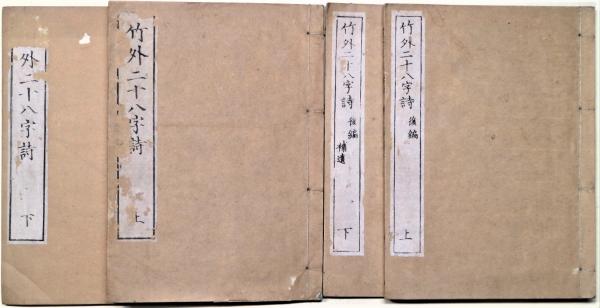 竹外二十八字詩 後編 上
竹外二十八字詩 後編 補遺 下
竹外二十八字詩 上
外二十八字詩 下